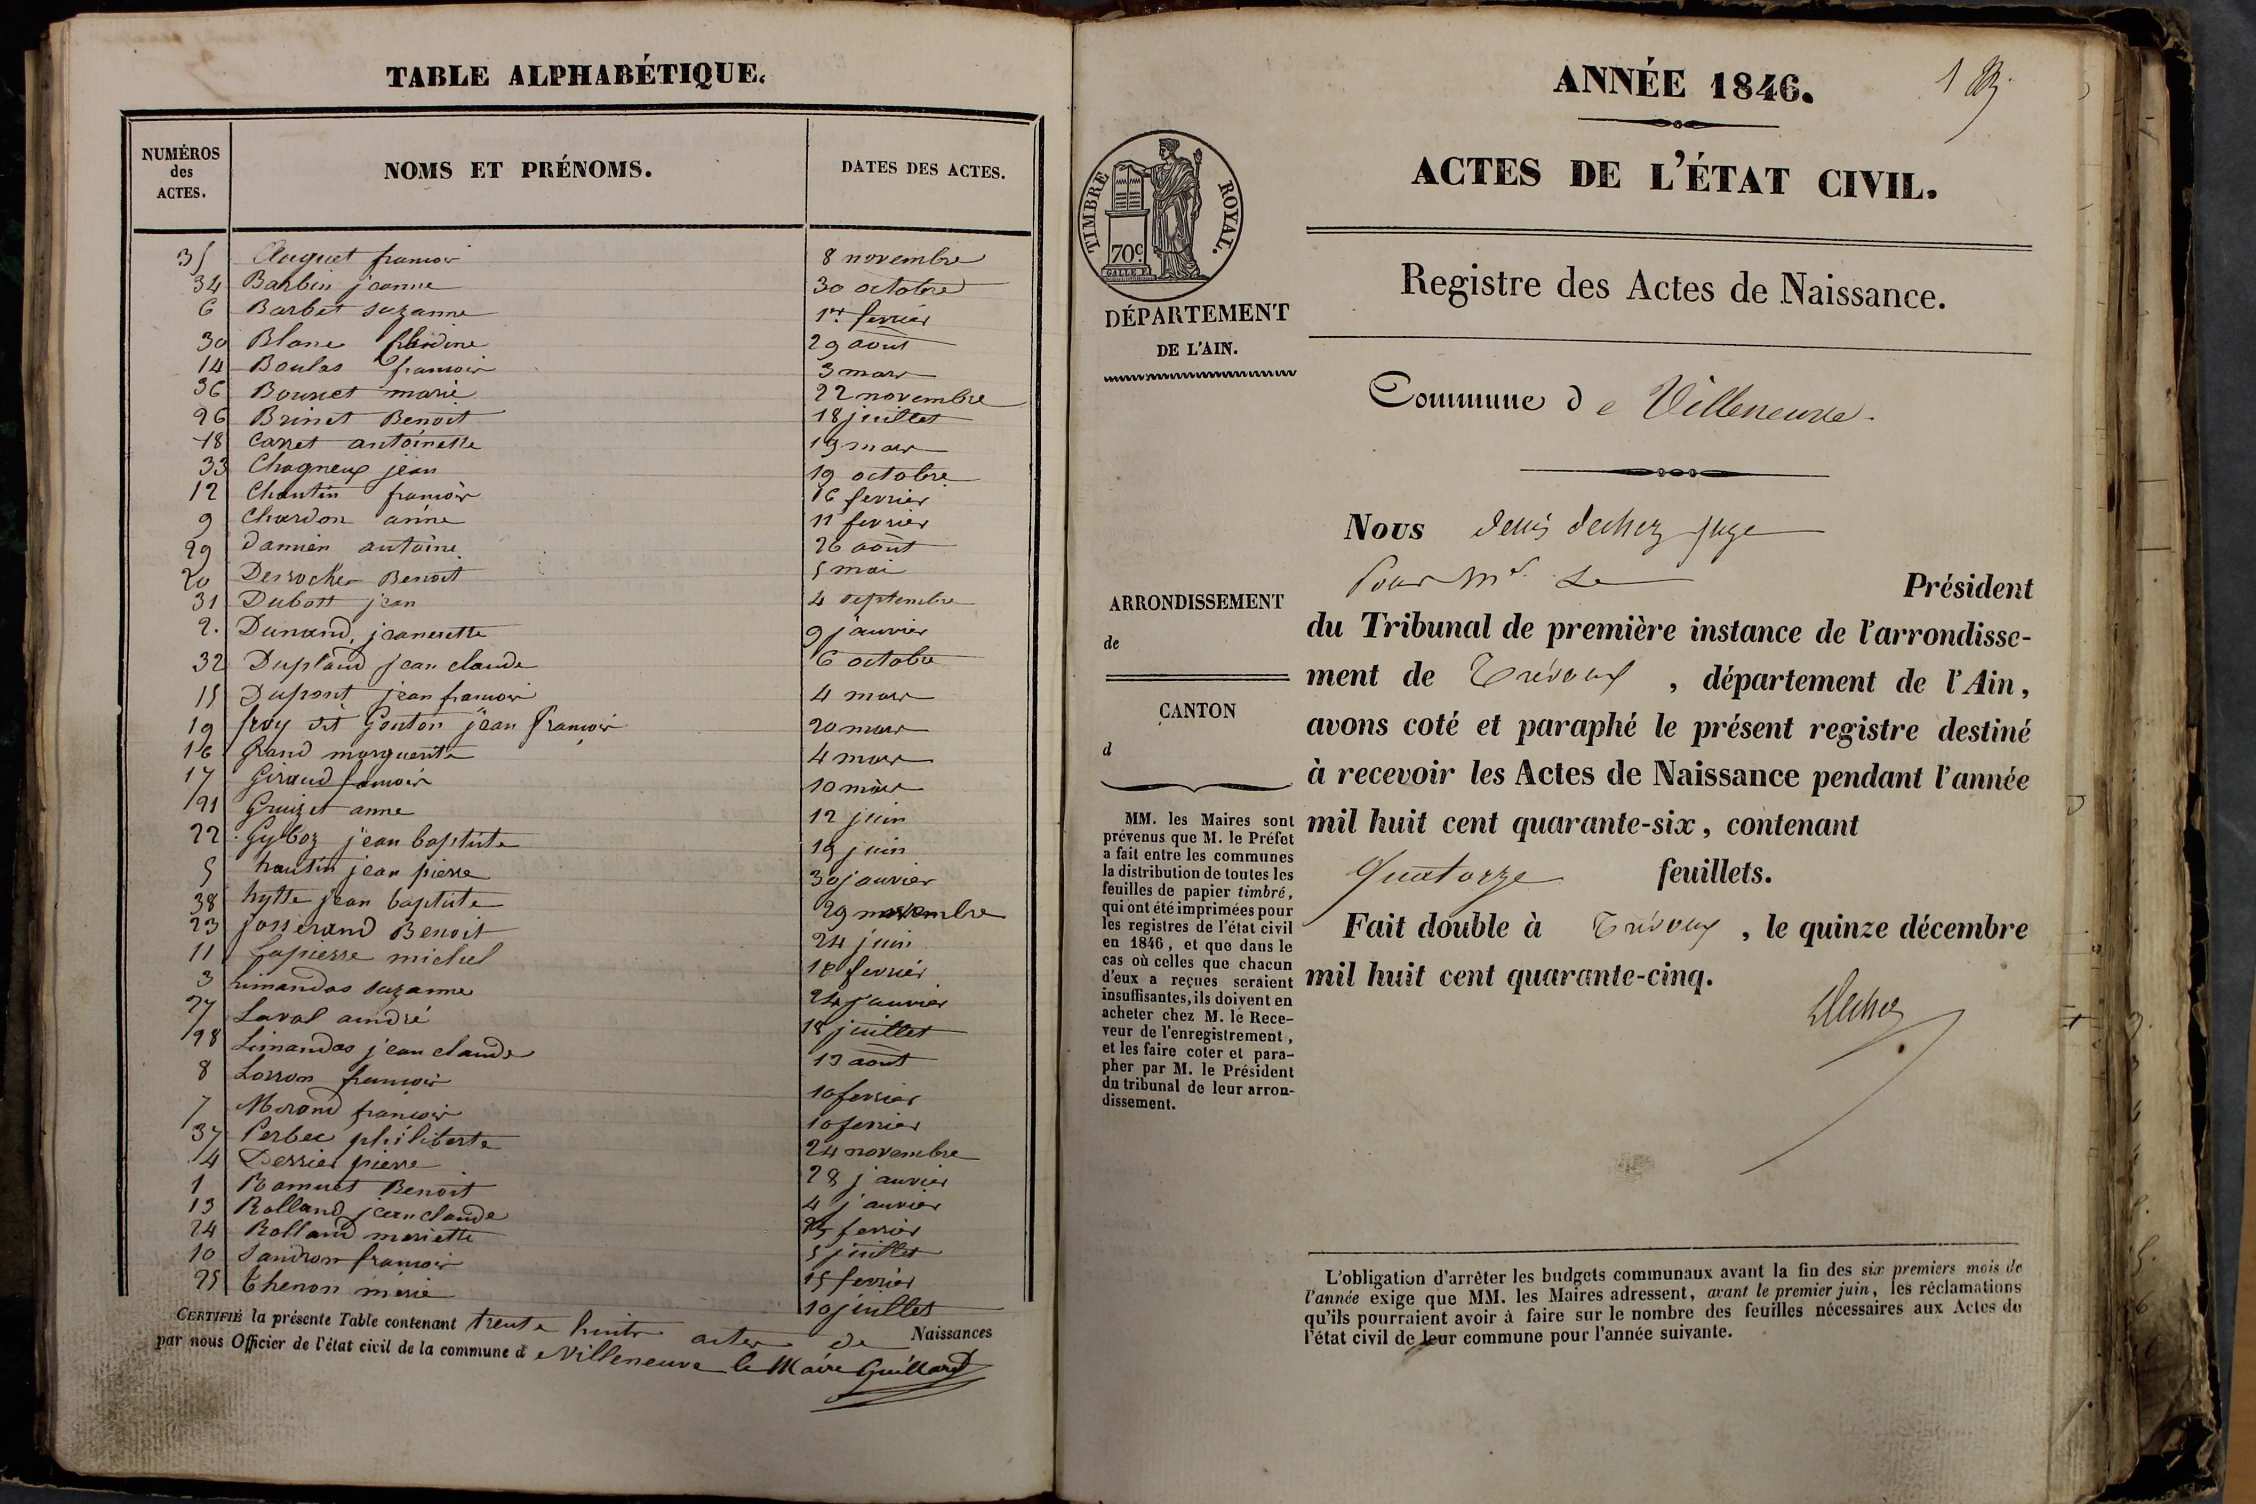 TABLE ALPHABÉTIQUE.
NUMÉROS
des
ACTES.
NOMS ET PRÉNOMS.
DATES DES ACTES.
35 Auguet francois 8 novembre
34 Barbin jeanne 30 octobre
6 Barbet suzanne 1er fevrier
30 Blanc 29 août
14 Boulas francois 3 mars
36 Bourret marie 22 novembre
26 Brinet Benoit 18 juillet
18 Carret antoinette 19 mars
33 Chagneux jean 19 octobre
12 Chantin francois 16 fevrier
9 Chardon anne 11 fevrier
29 Damien antoine 26 août
20 Desroches Benoit 5 mai
31 Dubost jean 4 septembre
2. Dunand, 9 janvier
32 Dupland jean claude 6 octobre
15 Dupont jean francois 4 mars
19 froy dit Gonton jean francois 20 mars
16 Grand marguerite 4 mars
17 Giraud francois 10 mars
21 Gruizet anne 12 juin
22 jean baptiste 19 juin
5 hautin jean pierre 30 janvier
38 hytte jean baptiste 29 novembre
23 josserand Benoit 24 juin
11 Lapierre michel fevrier
3 Limandas suzanne 24 janvier
27 Laval andré 18 juillet
28 Limandas jean claude 13 août
8 Lorron francois 10 fevrier
7 Morand francois 10 fevrier
37 Perbec philiberte 24 novembre
4 Perrier pierre 28 janvier
1 Ramuet Benoit 4 janvier
13 Rolland jean claude fevrier
24 Rolland mariette 5 juillet
10 Sandron francois 15 fevrier
25 Thenon marie 10 juillet
CERTIFIÉ la présente Table contenant trente huit actes de Naissances
par nous Officier de l'état civil de la commune d e Villeneuve le Maire Guillard
ANNÉE 1846.
1
ACTES DE L'ÉTAT CIVIL.
TIMBRE ROYAL.
70c
Registre des Actes de Naissance.
DÉPARTEMENT
DE L'AIN.
Commune d e Villeneuve.
Nous denis dechez juge
Pour Mr Le Président
du Tribunal de première instance de l'arrondisse-
ment de Trévoux, département de l'Ain,
avons coté et paraphé le présent registre destiné
à recevoir les Actes de Naissance pendant l'année
mil huit cent quarante-six, contenant
Quatorze feuillets.
Fait double à Trévoux, le quinze décembre
mil huit cent quarante-cinq.
Dechez
ARRONDISSEMENT
de
CANTON
d
MM. les Maires sont
prévenus que M. le Préfet
a fait entre les communes
la distribution de toutes les
feuilles de papier timbré,
qui ont été imprimées pour
les registres de l'état civil
en 1846, et que dans le
cas où celles que chacun
d'eux a reçues seraient
insuffisantes, ils doivent en
acheter chez M. le Rece-
veur de l'enregistrement,
et les faire coter et para-
pher par M. le Président
du tribunal de leur arron-
dissement.
L'obligation d'arrêter les budgets communaux avant la fin des six premiers mois de
l'année exige que MM. les Maires adressent, avant le premier juin, les réclamations
qu'ils pourraient avoir à faire sur le nombre des feuilles nécessaires aux Actes de
l'état civil de leur commune pour l'année suivante.